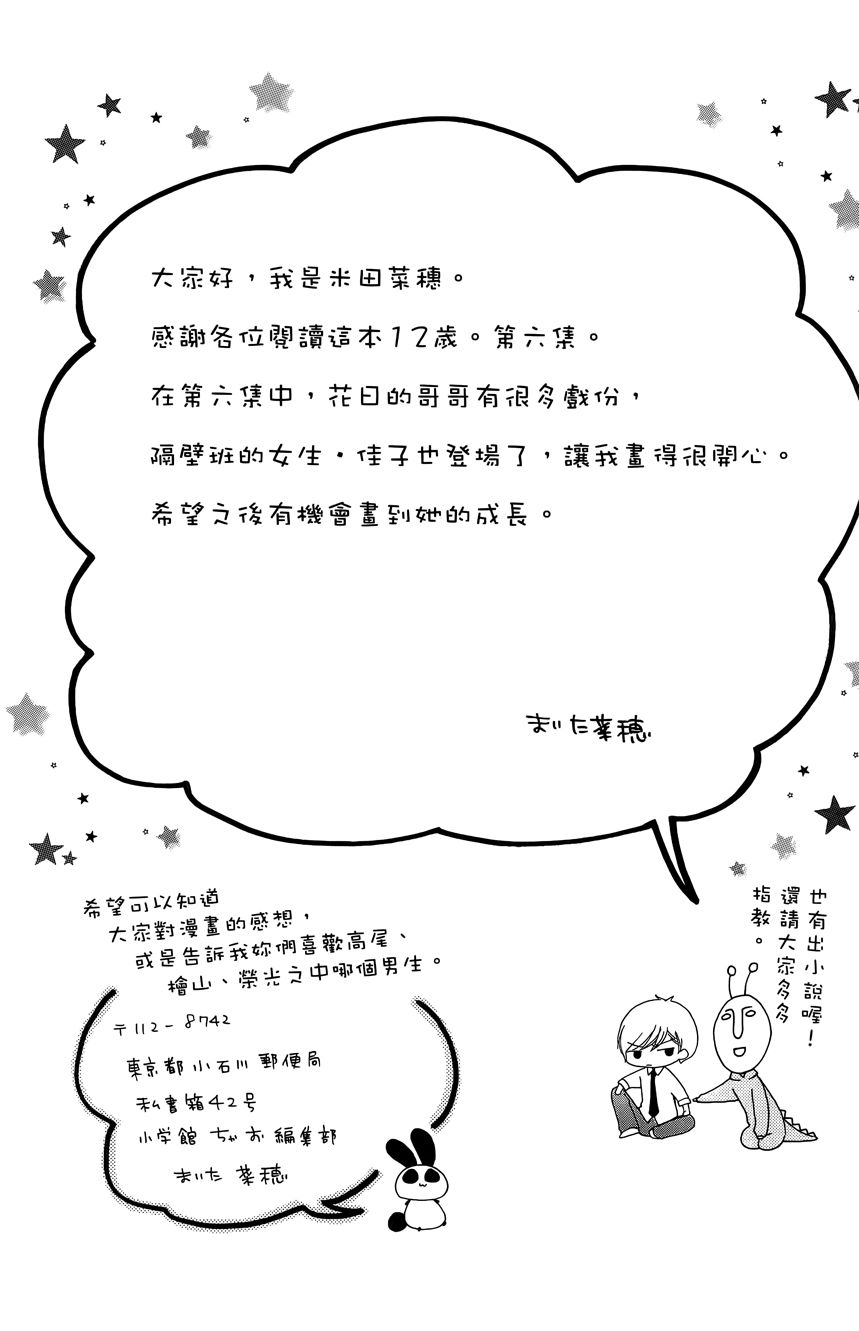 大家好，我是米田菜穗。
感謝各位閱讀這本12歲。第六集。
在第六集中，花日的哥哥有很多戲份，
隔壁班的女生・佳子也登場了，讓我畫得很開心。
希望之後有機會畫到她的成長。
まいた菜穂
也有出小說喔！
還請大家多多
指教。
希望可以知道
大家對漫畫的感想，
或是告訴我妳們喜歡高尾、
檜山、榮光之中哪個男生。
〒112-8742
東京都小石川郵便局
私書箱42号
小学館 ちゃお編集部
まいた 菜穂